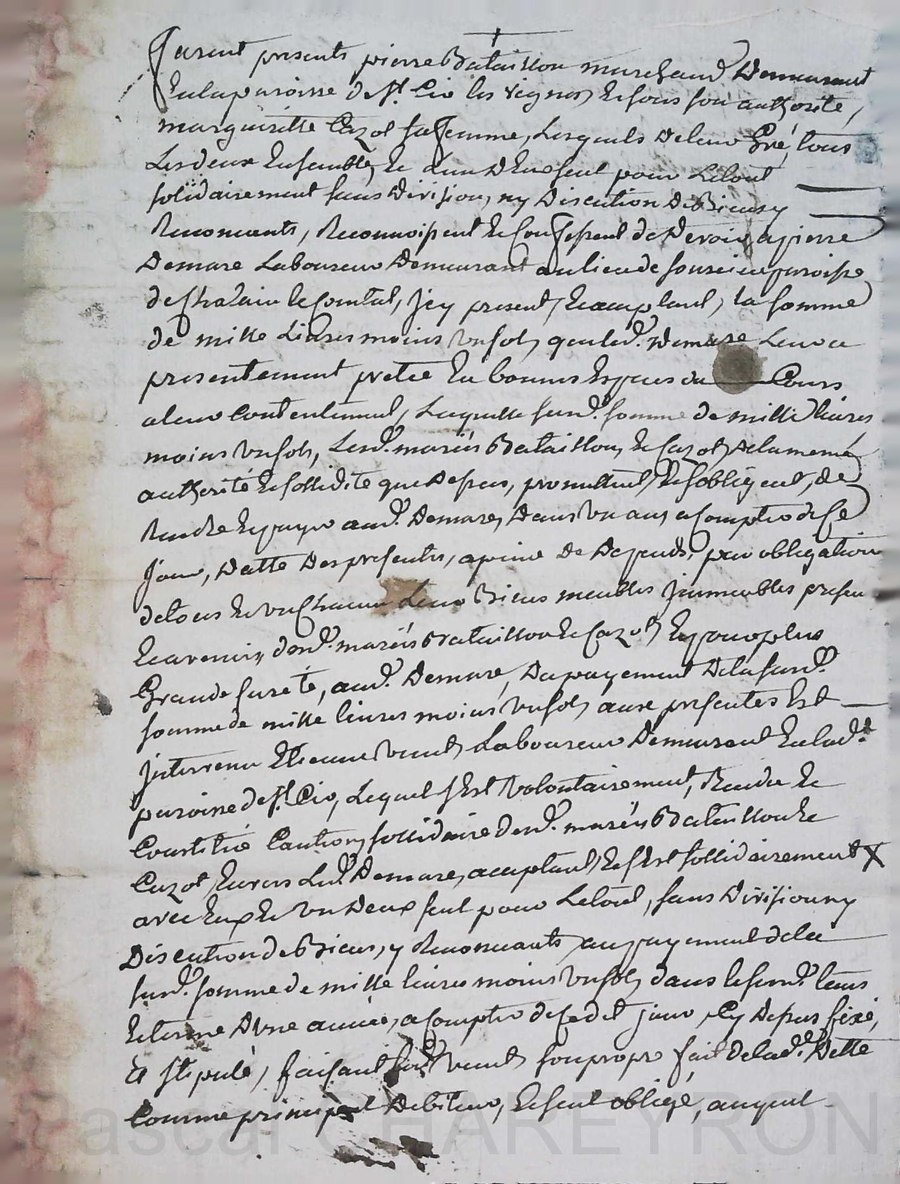 furent presents pierre Bataillon marchand Demeurant
En la paroisse de St. Cir les vignes Et sous son authorité,
marguiritte Cazot sa femme, Lesquels De leur Gré, tous
Les deux Ensemble, Et L'un D'Eux seul pour Le tout
solidairement sans Division, ny Discution De Biens y
Renoncants, Reconnoissent Et Confessent de Devoir a pierre
Demare Laboureur Demeurant au lieu de paroisse
de Chalain le Comtal, Icy present, Et acceptant, la somme
de mille Livres moins un sol, que led. Demare Leur a
presentement preté En bonnes Especes du Cours
a leur Contentement, Laquelle susd. somme de mille livres
moins un sol, Lesd. mariés Bataillon, Et Cazot, De la meme
authorité Et sollidité que Dessus, promettent, Et s'obligent, de
Rendre Et payer aud. Demare, Dans un an, a Compter de Ce
Jour, Datte Des presentes, a peine de Depends, par obligation
de tous Et un Chacun Leurs Biens meubles Immeubles presents
Et avenir, desd. mariés Bataillon Et Cazot, Et pour plus
Grande sureté, aud. Demare, Du payement De la susd.
somme de mille livres moins un sol, aux presentes Est
Intervenu Etienne Laboureur Demeurant En lad.
paroisse de St. Cir, Lequel s'Est volontairement, Rendu Et
Constitué Caution sollidaire desd. mariés Bataillon Et
Cazot, Envers Led. Demare, acceptant, Et s'Est sollidairement X
avec Eux Et un D'eux seul pour Le tout, sans Division ny
Discution de Biens, y Renoncants, au payement de la
susd. somme de mille livres moins un sol, dans le susd. tems
Et terme D'une année, a Compter de Cedit jour, Cy Dessus fixé,
Et stipulé, faisant led. son propre fait de lad. Dette
Comme principal Debiteur, Et seul obligé, auquel
Pascal CHAREYRON